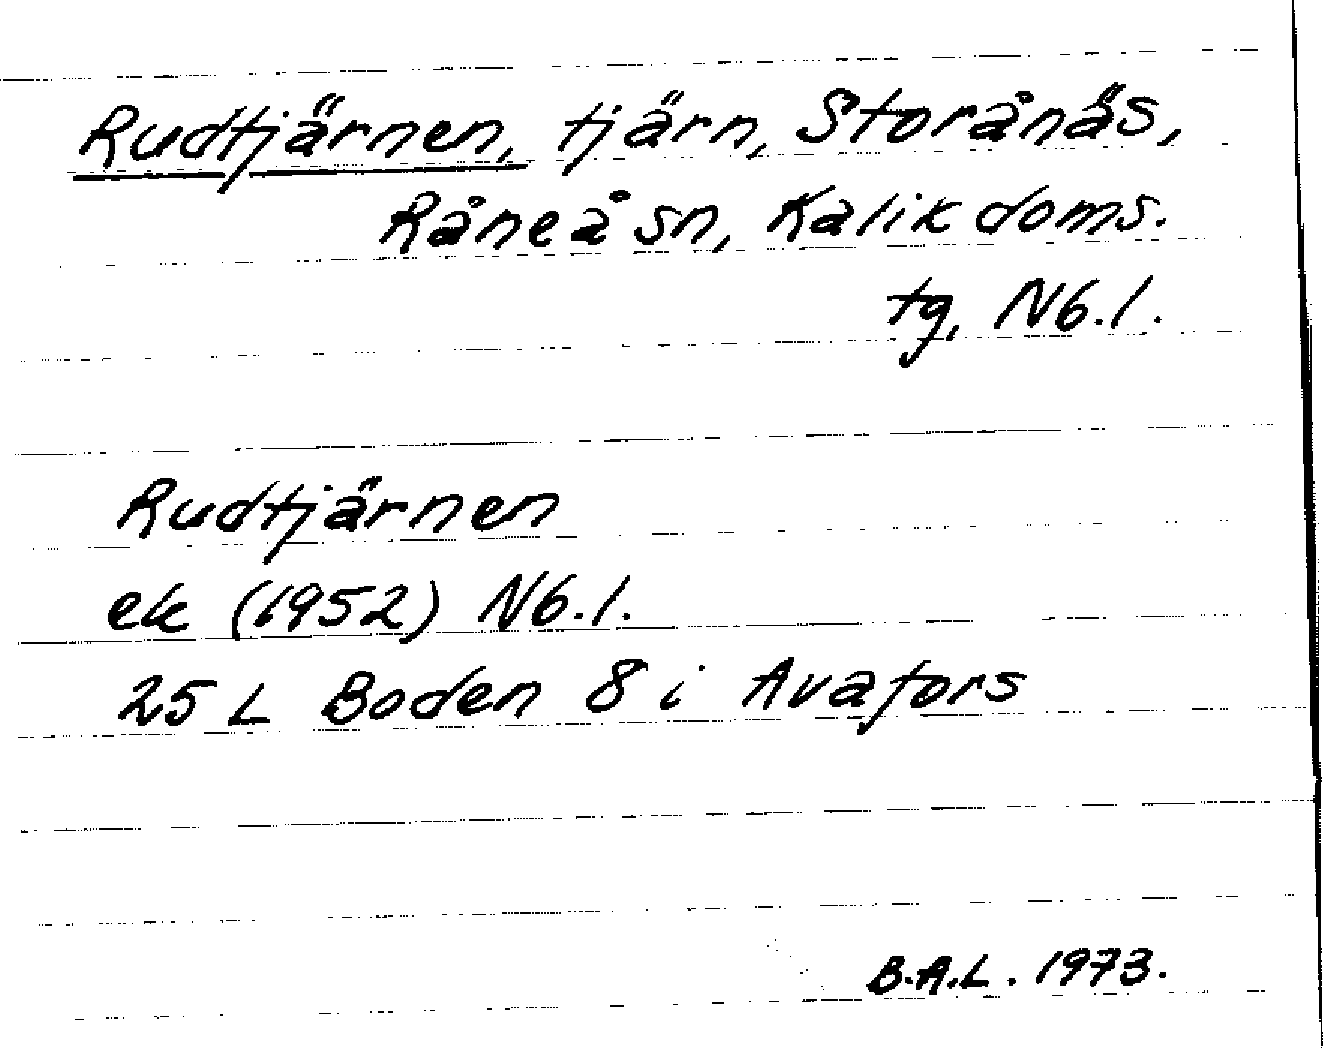 Rudtjärnen, tjärn, Storånäs,
Råneå sn, Kalik doms.
tg, N6.1.
Rudtjärnen
ek (1952) N6.1.
25 L Boden 8 i Avafors
B.A.L. 1973.